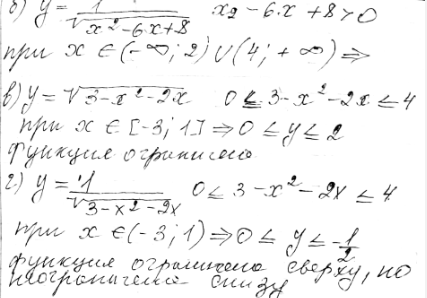 б) y = 1/√(x²-6·x+8) x2-6·x+8>0
при x ∈ (-∞; 2) ∪ (4; +∞) ⇒
в) y = √(3-x²-2x) 0 ≤ 3-x²-2x ≤ 4
при x ∈ [-3; 1] ⇒ 0 ≤ y ≤ 2
функция ограничена
г) y = 1/√(3-x²-2x) 0 ≤ 3-x²-2x ≤ 4
при x ∈ (-3; 1) ⇒ 0 ≤ y ≤ -1/2
функция ограничена сверху, но
неограничена снизу